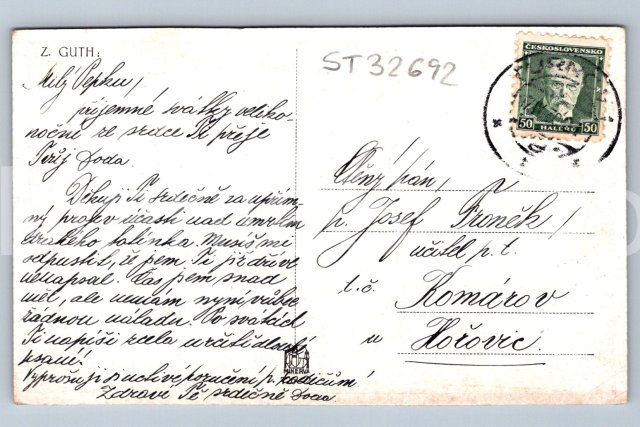 Z. GUTH:
Milý Pepku,
příjemné svátky veliko-
noční ze srdce Ti přeje
Tvůj Doda.
Děkuji Ti srdečně za upřím-
ný projev účasti nad úmrtím
drahého tatínka. Musíš mi
odpustit, že jsem Ti již dříve
nenapsal. Čas jsem snad
měl, ale nemám nyní vůbec
žádnou náladu. Po svátcích
Ti napíši zcela určitě dlouhé
psaní!
Vyprošuji si uctivé poručení p. rodičům
Zdraví Tě srdečně Doda
MINERVA
ST32692
ČESKOSLOVENSKO
50 HALÉŘŮ 50
Ctěný pán,
p. Josef Froněk,
učitel p. t.
t. č. Komárov
u Hořovic